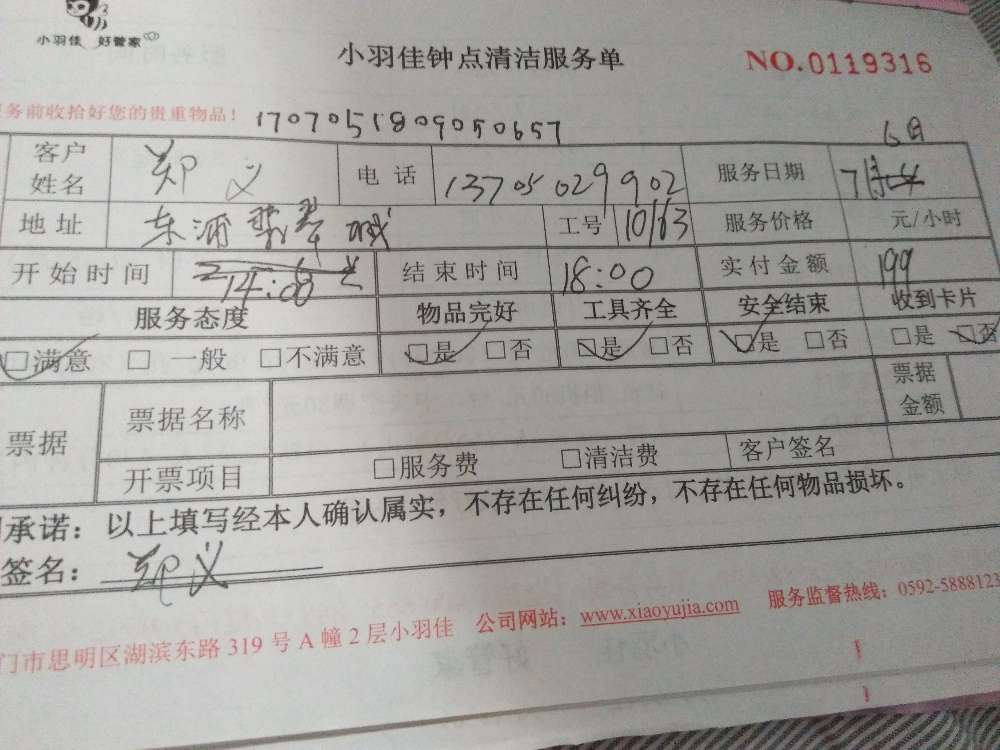 小羽佳 好管家
小羽佳钟点清洁服务单
NO.0119316
务前收拾好您的贵重物品！
1707051809050657
6日
客户姓名 郑义 电话 13705029902 服务日期 7月
地址 东浦翡翠城 工号 10163 服务价格 元/小时
开始时间 14:00 结束时间 18:00 实付金额 199
服务态度 物品完好 工具齐全 安全结束 收到卡片
☑满意 □一般 □不满意 ☑是 □否 ☑是 □否 ☑是 □否 □是 ☑否
票据 票据名称 票据金额
开票项目 □服务费 □清洁费 客户签名
承诺：以上填写经本人确认属实，不存在任何纠纷，不存在任何物品损坏。
签名：郑义
门市思明区湖滨东路319号A幢2层小羽佳 公司网站：www.xiaoyujia.com 服务监督热线：0592-5888123